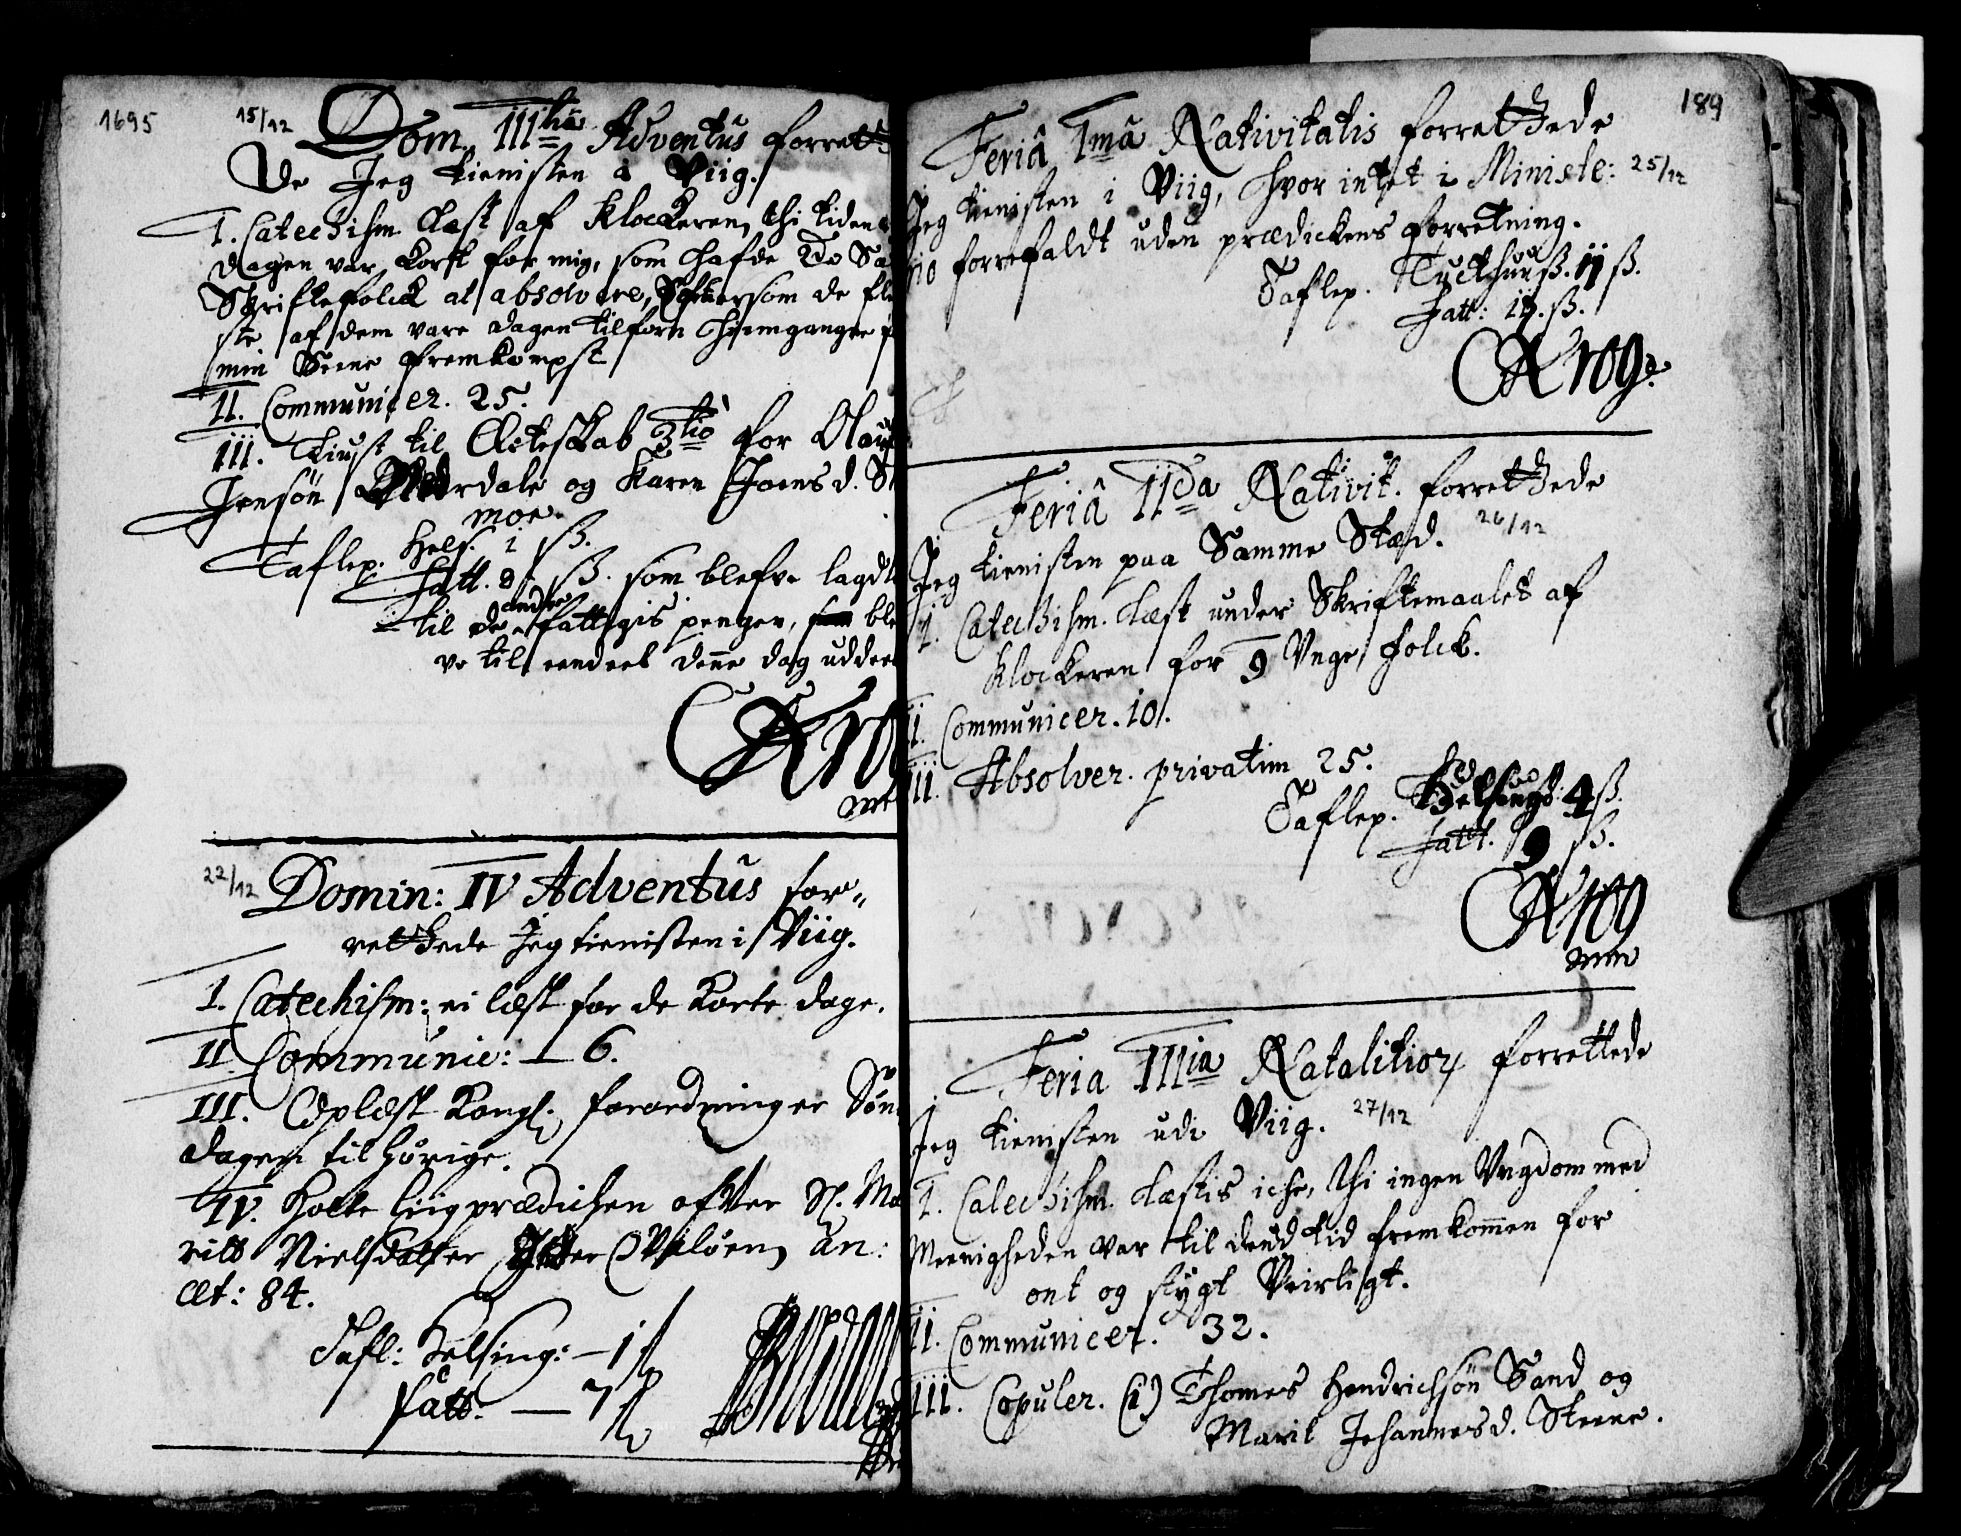 1695
15/12
Dom. IIItia Adventus forrett
de Jeg tienisten i Viig.
I. Catechism. læst af Klockeren, thi tiden
dagen var kort for mig, som hafde 2de
Skriftefolck at absolvere, efftersom de
ste af dem vare dagen tilforn hiemgangne
min Seene fremkompst
II. Communicer. 25.
III. Liust til Ecteskab 3tiò for Olauf
Jensøn og Karen Joensd.
moe.
Taflep. Hels. 1 ß.
Fatt. 8 ß. som blefve lagdt
til de andre fattigis penger, ble
ve til eendeel denne dag uddee
Krog
22/12
Domin: IV Adventus for„
rettede Jeg tienisten i Viig.
I. Catechism: ei læst for de korte dage.
II Communic: — 6.
III. Oplæst Kongl. forordninger Søn
dagen tilhørige.
IV. Holte liigprædichen efter Sl. Ma
ritt Nielsdatter Øfleløen, an:
æt: 84.
Tafl: Helsing: — 1 ß
fatt. — 7 ß
189
Feriâ Imâ Nativitatis forrettede
Jeg tienisten i Viig, hvor intet i Ministe: 25/12
rio forrefaldt uden prædickens forretning.
Taflep. Tuchthus ß. 11 ß.
Fatt: ß.
Krog
Feriâ IIda Nativit. forrettede
Jeg tienisten paa Samme Stæd. 26/12
I. Catechism. læst under Skriftemaalet af
Klockeren for 9 Vnge folck.
II. Communicer. 10.
III. Absolver. privatim 25.
Taflep. Helsing: 4 ß.
Fatt. 9 ß.
Krog
mm
Feria IIIia Natalitior forrettede
Jeg tienisten udi Viig. 27/12
I. Catechism. læstis iche, thi ingen Vngdom med
Meenigheden var til dend tid fremkommen for
ont og stygt Veirligt.
II. Communicer. 32.
III. Copuler. (1) Thomes Hendrichsøn Sand og
Marit Johannesd. Steene.